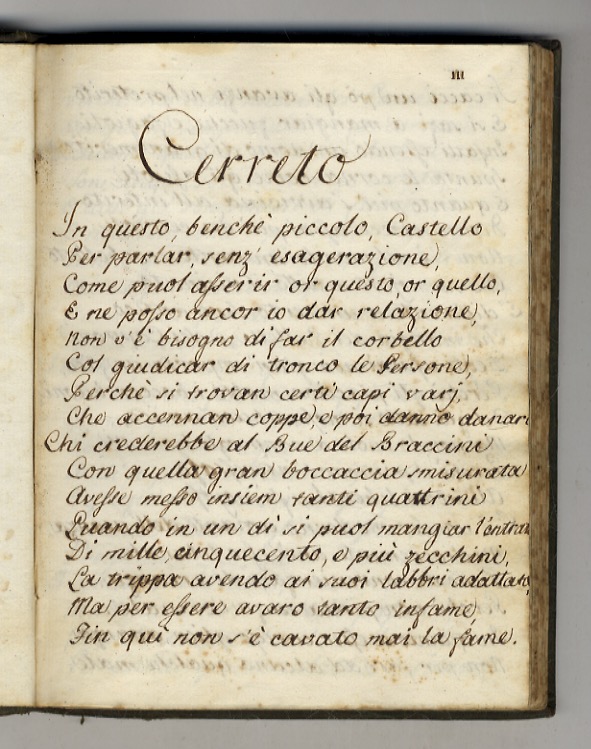 III
Cerreto
In questo, benchè piccolo, Castello
Per parlar senz' esagerazione,
Come puol asserir or questo, or quello,
E ne posso ancor io dar relazione,
Non v'è bisogno di far il corbello
Col giudicar di tronco le Persone,
Perchè si trovan certi capi varj,
Che accennan coppe, e poi danno danari
Chi crederebbe al Bue del Braccini
Con quella gran boccaccia smisurata
Avesse messo insiem tanti quattrini
Quando in un dì si puol mangiar l'entra
Di mille, cinquecento, e più zecchini,
La trippa avendo ai suoi labbri adattata,
Ma per essere avaro tanto infame,
Fin qui non s'è cavato mai la fame.